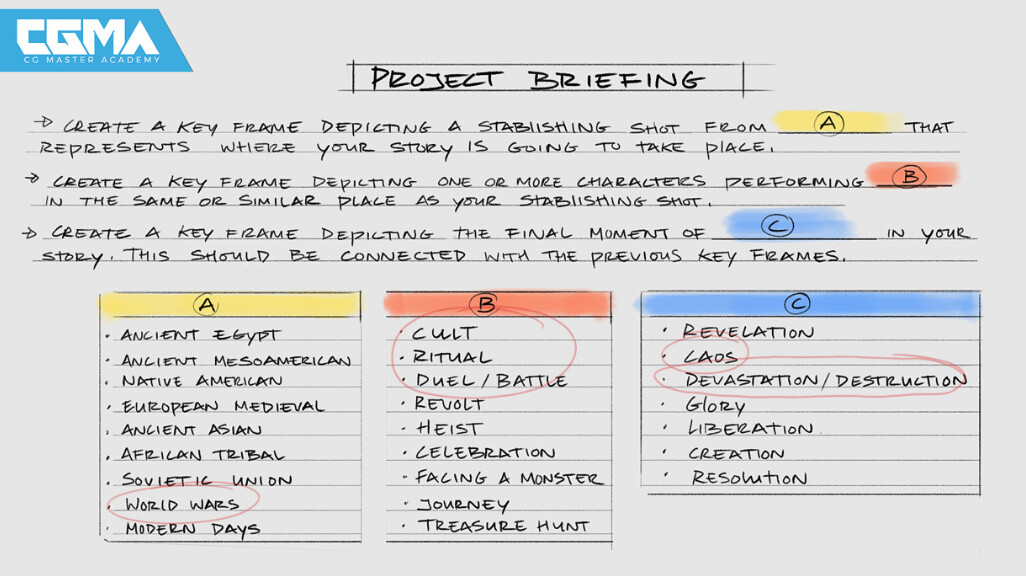 CGMA
CG MASTER ACADEMY
PROJECT BRIEFING
→ CREATE A KEY FRAME DEPICTING A STABLISHING SHOT FROM A THAT
REPRESENTS WHERE YOUR STORY IS GOING TO TAKE PLACE.
→ CREATE A KEY FRAME DEPICTING ONE OR MORE CHARACTERS PERFORMING B
IN THE SAME OR SIMILAR PLACE AS YOUR STABLISHING SHOT.
→ CREATE A KEY FRAME DEPICTING THE FINAL MOMENT OF C IN YOUR
STORY. THIS SHOULD BE CONNECTED WITH THE PREVIOUS KEY FRAMES.
A
· ANCIENT EGYPT
· ANCIENT MESOAMERICAN
· NATIVE AMERICAN
· EUROPEAN MEDIEVAL
· ANCIENT ASIAN
· AFRICAN TRIBAL
· SOVIETIC UNION
· WORLD WARS
· MODERN DAYS
B
· CULT
· RITUAL
· DUEL/BATTLE
· REVOLT
· HEIST
· CELEBRATION
· FACING A MONSTER
· JOURNEY
· TREASURE HUNT
C
· REVELATION
· CAOS
· DEVASTATION/DESTRUCTION
· GLORY
· LIBERATION
· CREATION
· RESOLUTION